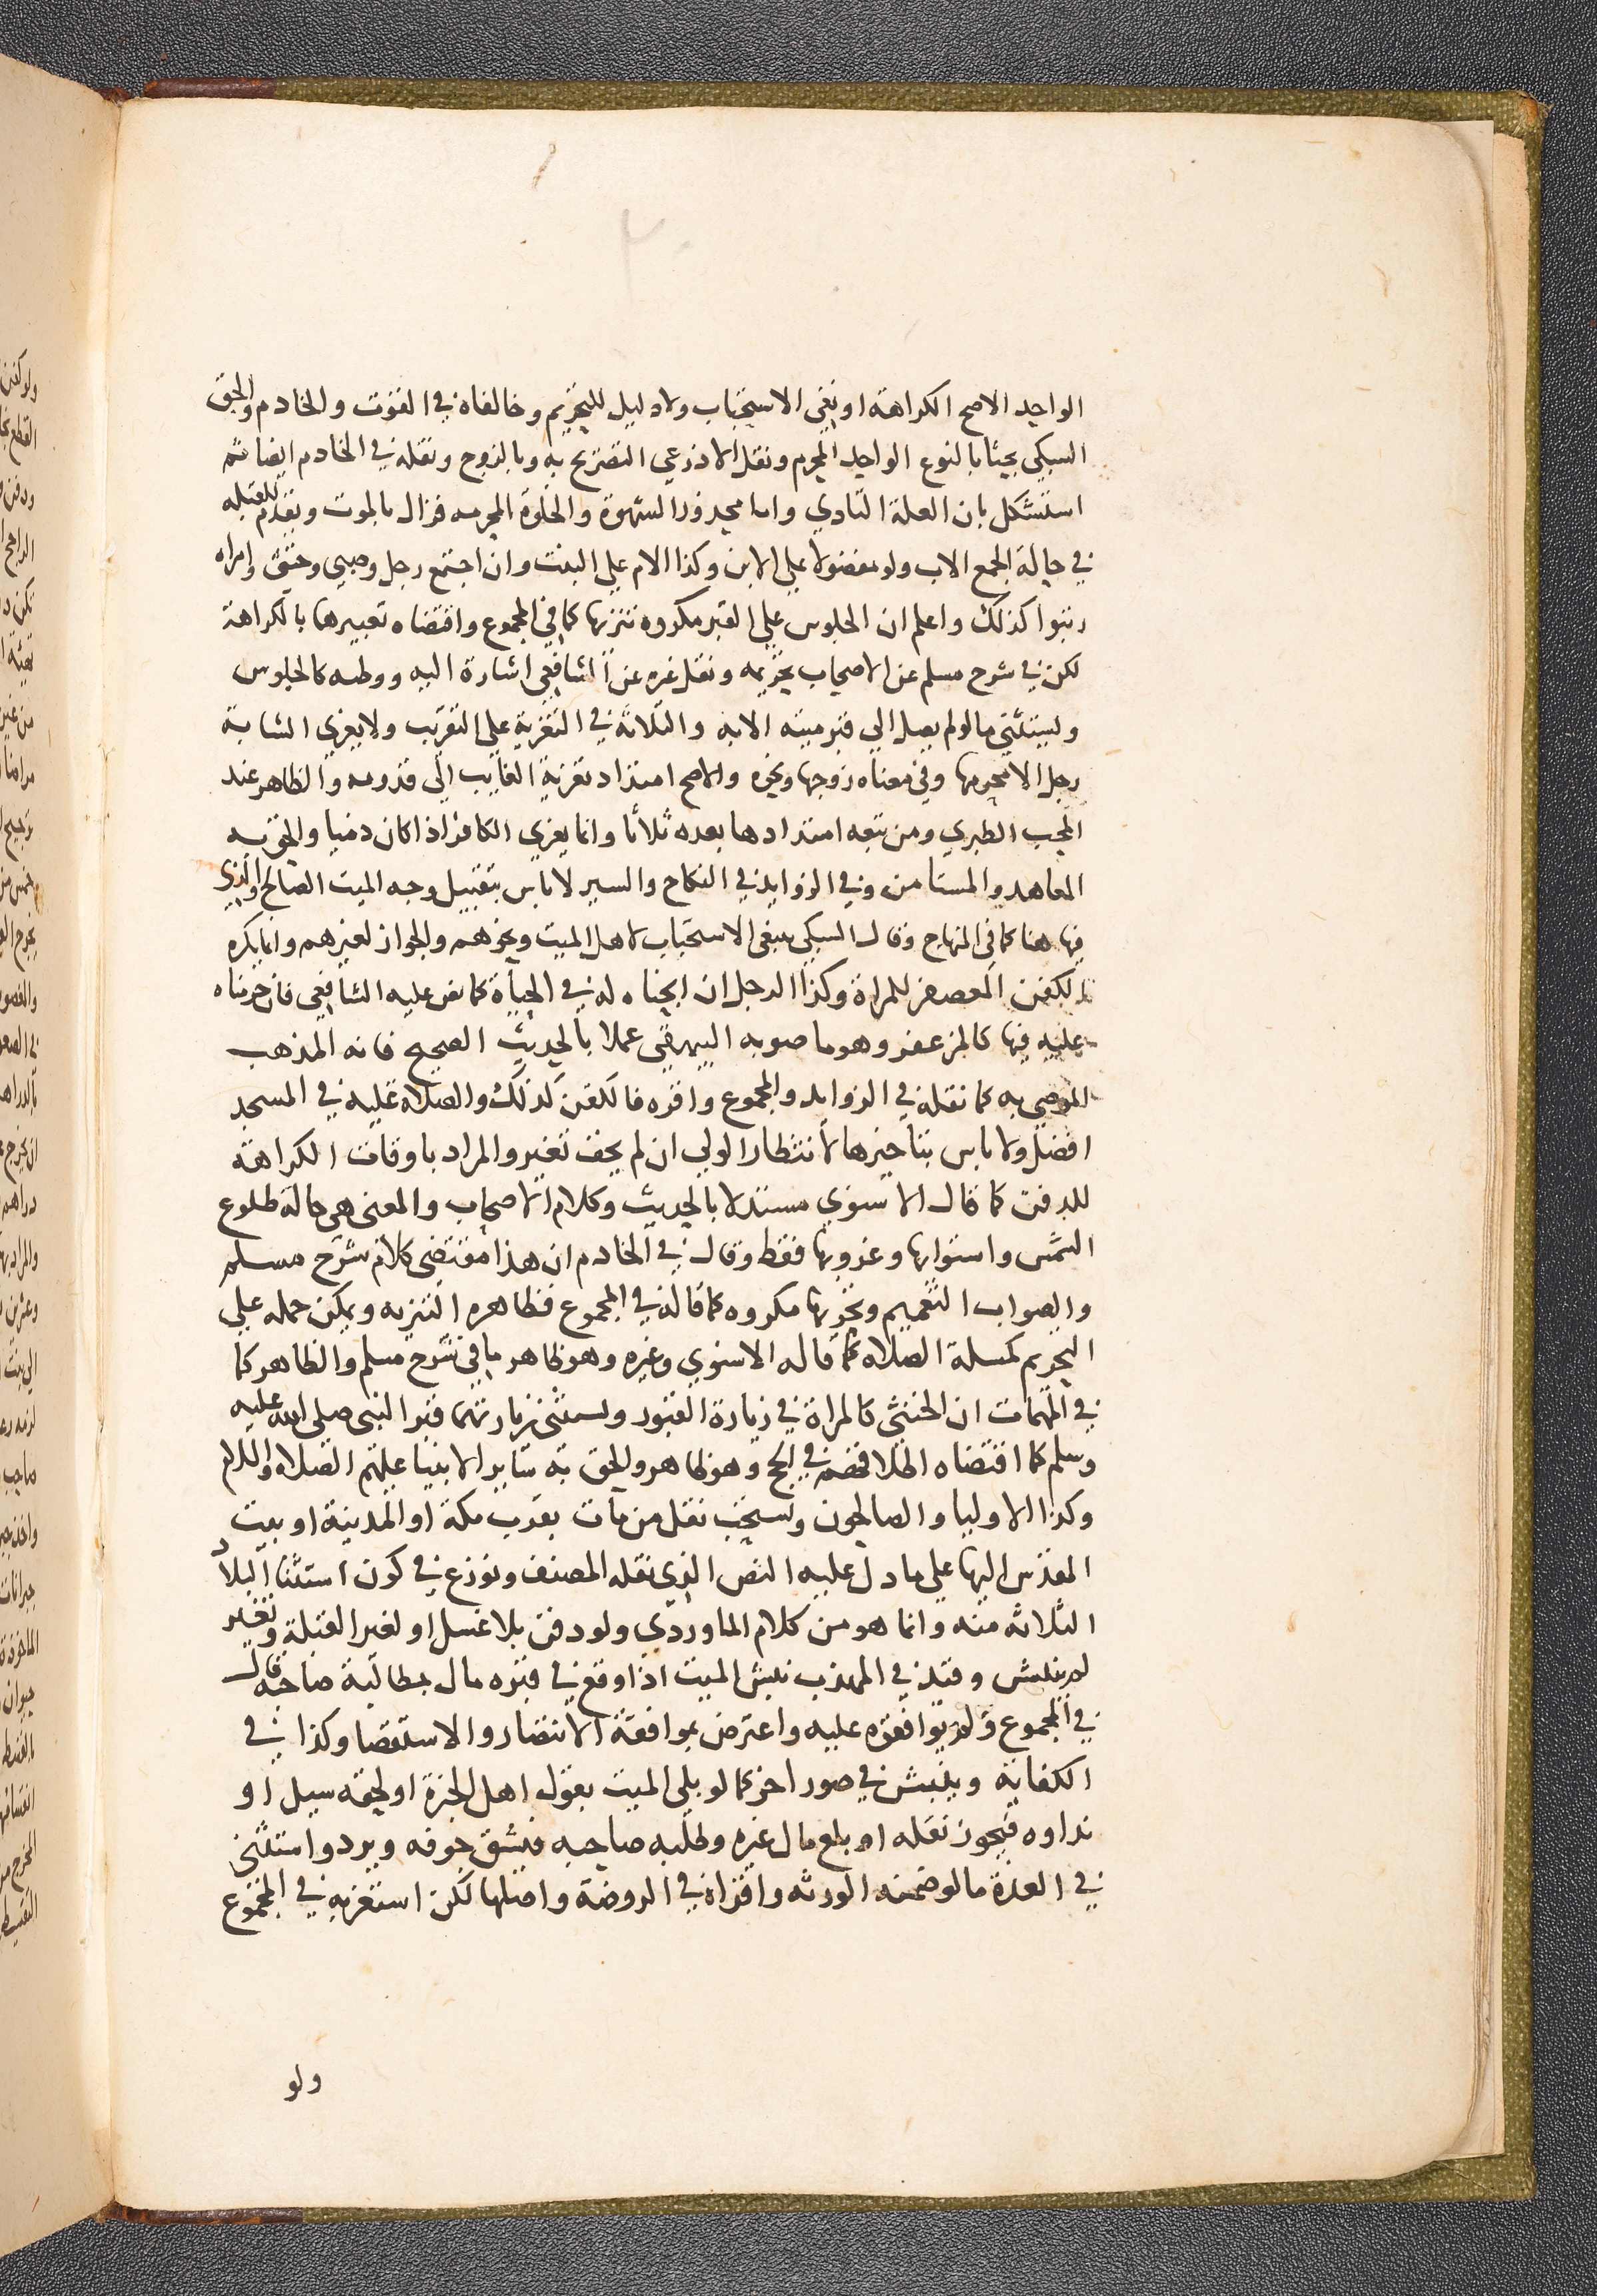 الواحد الاصح الكراهة او نفي الاستحباب ولا دليل للتحريم وخالفاه في القوت والخادم والحق
السبكي بحثا بالنوع الواحد المحرم ونقل الاذرعي التصريح به وبالزوج ونقله في الخادم ايضا ثم
استشكل بان العلة التاذي واما محذور الشهوة والخلوة المحرمه فزال بالموت ويقدم للقبله
في حالة الجمع الاب ولو مفضولا علي الابن وكذا الام علي البنت وان اجتمع رجل وصبي وخنثى وامراه
رتبوا كذلك واعلم ان الجلوس علي القبر مكروه تنزيها كما في المجموع واقتضاه تعبيرهما بالكراهة
لكن في شرح مسلم عن الاصحاب تحريمه ونقل غيره عن الشافعي اشارة اليه ووطيه كالجلوس
ويستثنى ما لو لم يصل الي قبر ميته الا به والثلاثة في التعزية علي التقريب ولا يعزي الشابة
رجل الا محرمها وفي معناه زوجها ونحوه والاصح امتداد تعزية الغايب الى قدومه والظاهر عند
المحب الطبري ومن تبعه امتدادها بعده ثلاثا وانما يعزي الكافر اذا كان ذميا والحق به
المعاهد والمستامن وفي الزوايد في النكاح والسير لا باس بتقبيل وجه الميت الصالح والذي
فيها هنا كما في المنهاج وقال السبكي ينبغي الاستحباب لاهل الميت ونحوهم والجواز لغيرهم وانما يكره
تكفين المعصفر للمراة وكذا الرجل ان ابحناه له في الحياة كما نص عليه الشافعي فان حرمناه
عليه فيها كالمزعفر وهو ما صوبه البيهقي عملا بالحديث الصحيح فانه المذهب
الموصي به كما نقله في الزوايد والمجموع واقره فالكفن كذلك والصلاه عليه في المسجد
افضل ولا باس بتاخيرها لانتظار الولي ان لم يخف تغير والمراد باوقات الكراهة
للدفن كما قال الاسنوي مستدلا بالحديث وكلام الاصحاب والمعنى هي حالة طلوع
الشمس واستوايها وغروبها فقط وقال في الخادم ان هذا مقتضى كلام شرح مسلم
والصواب التعميم وتحريها مكروه كما قاله في المجموع فظاهره التنزيه ويمكن حمله علي
التحريم كمسلة الصلاه كما قاله الاسنوي وغيره وهو ظاهر ما في شرح مسلم والظاهر كما
في المهمات ان الخنثى كالمراة في زيارة القبور ويستثنى زيارتهما قبر النبي صلى الله عليه
وسلم كما اقتضاه اطلاقهم في الحج وهو ظاهر والحق به ساير الانبيا عليهم الصلاه والسلام
وكذا الاوليا والصالحون ويستحب نقل من مات بقرب مكة او المدينة او بيت
المقدس اليها علي ما دل عليه النص الذي نقله المصنف ونوزع في كون استثنا البلاد
الثلاثه منه وانما هو من كلام الماوردي ولو دفن بلا غسل او لغير القبلة وتغير
لم ينبش وقيد في المهذب نبش الميت اذا وقع في قبره مال بمطالبة صاحبه قال
في المجموع ولم يوافقوه عليه واعترض بموافقة الانتصار والاستقصا وكذا في
الكفاية وينبش في صور اخر كما لو بلي الميت بقول اهل الخبرة او لحقه سيل او
نداوه فيجوز نقله او بلع مال غيره وطلبه صاحبه فيشق جوفه ويرد واستثنى
في العدة ما لو ضمنه الورثه واقراه في الروضة واصلها لكن استغربه في المجموع
ولو